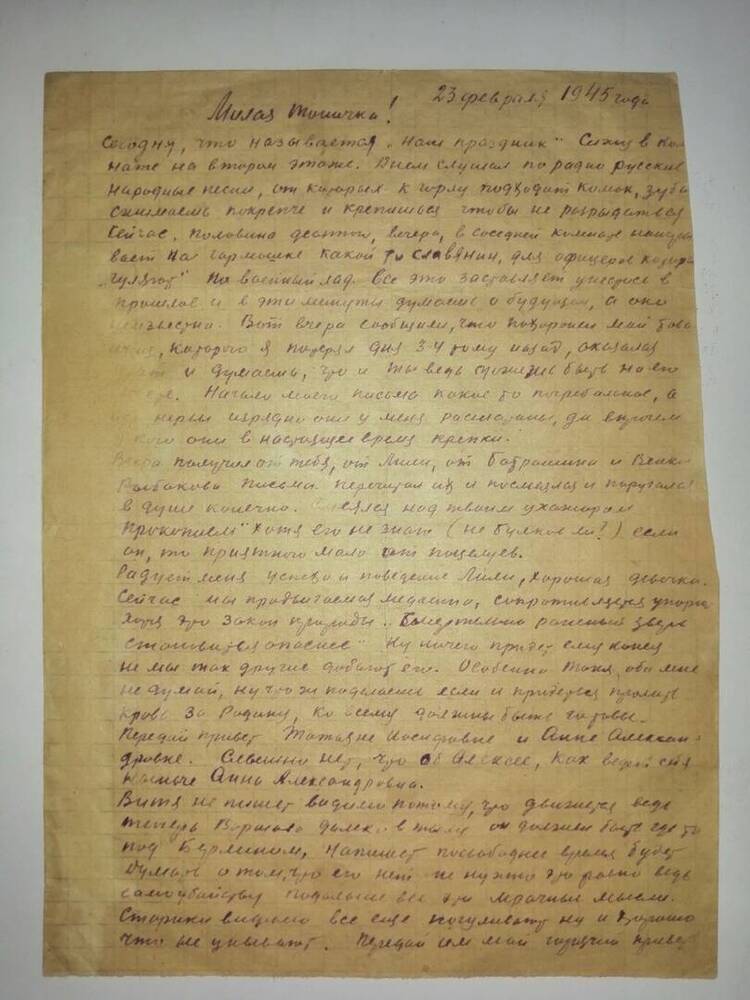 23 февраля 1945 года
Милая Тоничка!
Сегодну, что называется „Наш праздник" Сижу в ком
нате на втором этаже. Днем слушал по радио русские
народные песни, от которых к горлу подходит комок, зубы
сжимаешь покрепче и крепишься чтобы не разрыдаться
Сейчас, половина десятого, вечера, в соседней комнате наигры
вает на гармошке какой то славянин, для офицеров которые
„гуляют" на военный лад все это заставляет унестись в
прошлое и в эти минуты думаешь о будущем, а оно
неизвестно. Вот вчера сообщили, что похоронен мой това
которого я потерял дня 3-4 тому назад, оказался
и думаешь, что и ты ведь сможешь быть на его
Начало моего письма какое то погребальное, а
нервы изрядно они у меня расшатаны, да впрочем
у кого они в настоящее время крепки.
Вчера получил от тебя, от Лили, от и
Рыбакова письма перечитал их и посмеялся и поругался
в душе конечно. Смеялся над твоим ухажором
Прокописем" хотя его не знаю (не Булков ли?) если
он, то приятного мало от поцелуев.
Радует меня успехи и поведение Лили, хорошая девочка.
Сейчас мы продвигаемся медленно, сопротивляется упорно
хотя это закон природы. „Смертельно раненый зверь
становится опаснее" Ну ничего придет ему конец
не мы так другие добьют его. Особенно Тоня, обо мне
не думай, ну что ж поделаешь если и придеться пролить
кровь за Родину, ко всему должны быть готовы.
Передай привет Татьяне Иосифовне и Анне Алексан-
дровне. Слышно нет, что об Алексее, как ведет себя
Анна Александровна.
Витя не пишет видимо потому, что движется ведь
теперь Варшава далек. в тылу он должен быть где то
под Берлином, напишет посвободнее время будет
Думать о том, что его нет не нужно это равно ведь
самоубийству подальше все эти мрачные мысли.
Старики видимо все еще погуливают ну и хорошо
что не унывают. Передай им мой горячий привет